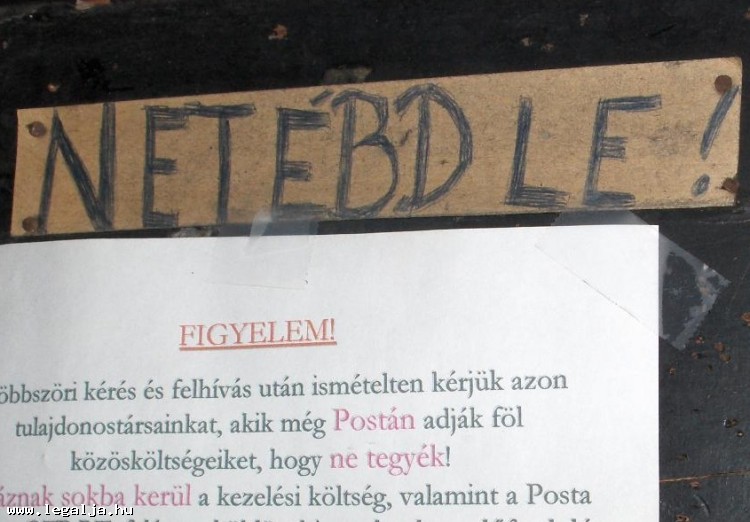 NE TÉBD LE!
FIGYELEM!
öbbszöri kérés és felhívás után ismételten kérjük azon
tulajdonostársainkat, akik még Postán adják föl
közösköltségeiket, hogy ne tegyék!
áznak sokba kerül a kezelési költség, valamint a Posta
www.legalja.hu
www.legalja.hu